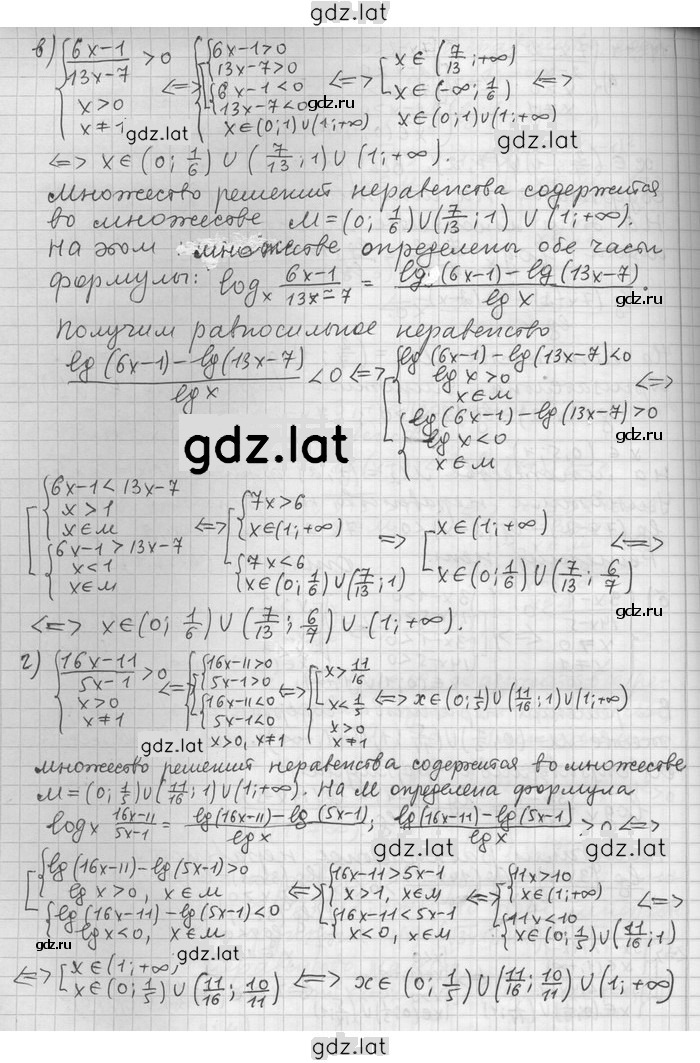 gdz.lat
в) { (6x-1)/(13x-7) > 0, x > 0, x ≠ 1 <=> { [ { 6x-1>0, 13x-7>0 { 6x-1<0, 13x-7<0 x∈(0;1)∪(1;+∞) <=> [ x∈(7/13;+∞) x∈(-∞;1/6) x∈(0;1)∪(1;+∞) <=>
gdz.lat
gdz.lat
<=> x∈(0; 1/6)∪(7/13;1)∪(1;+∞).
множество решений неравенства содержится
во множестве M=(0; 1/6)∪(7/13;1)∪(1;+∞).
На этом множестве определены обе части
формулы: log_x (6x-1)/(13x-7) = (lg(6x-1)-lg(13x-7))/lg x.
gdz.lat
Получим равносильное неравенство
(lg(6x-1)-lg(13x-7))/lg x <0 <=> [ { lg(6x-1)-lg(13x-7)<0 lg x>0 x∈M { lg(6x-1)-lg(13x-7)>0 lg x<0 x∈M <=>
gdz.lat
[ { 6x-1<13x-7 x>1 x∈M { 6x-1>13x-7 x<1 x∈M <=> [ { 7x>6 x∈(1;+∞) { 7x<6 x∈(0;1/6)∪(7/13;1) => [ x∈(1;+∞) x∈(0;1/6)∪(7/13;6/7) <=>
<=> x∈(0; 1/6)∪(7/13; 6/7)∪(1;+∞).
г) { (16x-11)/(5x-1) >0 x>0 x≠1 <=> { [ { 16x-11>0 5x-1>0 { 16x-11<0 5x-1<0 x>0, x≠1 <=> { [ x>11/16 x<1/5 x>0 x≠1 <=> x∈(0;1/5)∪(11/16;1)∪(1;+∞)
gdz.lat
множество решений неравенства содержится во множестве
M=(0;1/5)∪(11/16;1)∪(1;+∞). На M определена формула
log_x (16x-11)/(5x-1) = (lg(16x-11)-lg(5x-1))/lg x; (lg(16x-11)-lg(5x-1))/lg x >0 <=>
gdz.lat
[ { lg(16x-11)-lg(5x-1)>0 lg x>0, x∈M { lg(16x-11)-lg(5x-1)<0 lg x<0, x∈M <=> [ { 16x-11>5x-1 x>1, x∈M { 16x-11<5x-1 x<0, x∈M <=> [ { 11x>10 x∈(1;+∞) { 11x<10 x∈(0;1/5)∪(11/16;1) <=>
gdz.lat
gdz.lat
<=> [ x∈(1;+∞) x∈(0;1/5)∪(11/16;10/11) <=> x∈(0;1/5)∪(11/16;10/11)∪(1;+∞)
gdz.lat